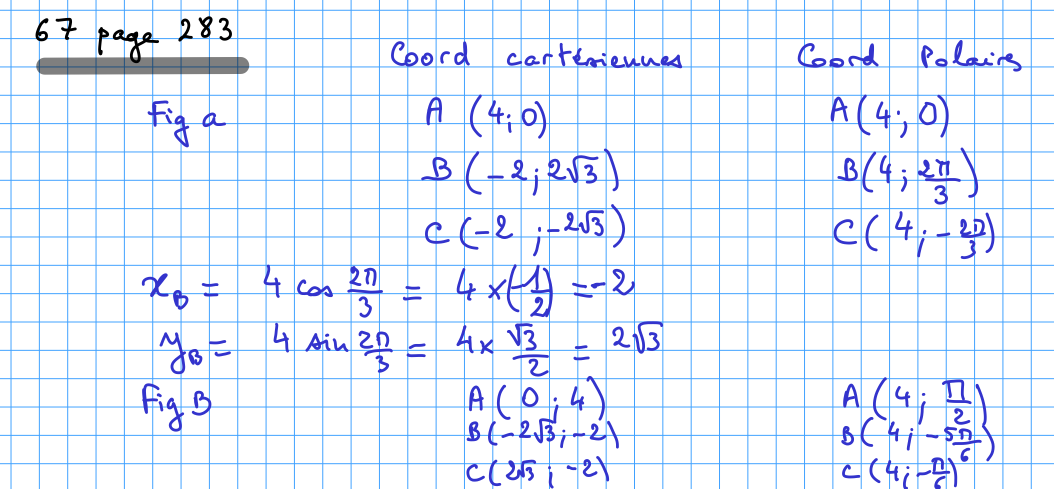 67 page 283
Coord cartésiennes Coord Polaires
Fig a A (4; 0) A (4; 0)
B (-2; 2√3) B (4; 2π/3)
C (-2; -2√3) C (4; -2π/3)
x_B = 4 cos 2π/3 = 4 × (-1/2) = -2
y_B = 4 sin 2π/3 = 4 × √3/2 = 2√3
Fig B A (0; 4) A (4; π/2)
B (-2√3; -2) B (4; -5π/6)
C (2√3; -2) C (4; -π/6)